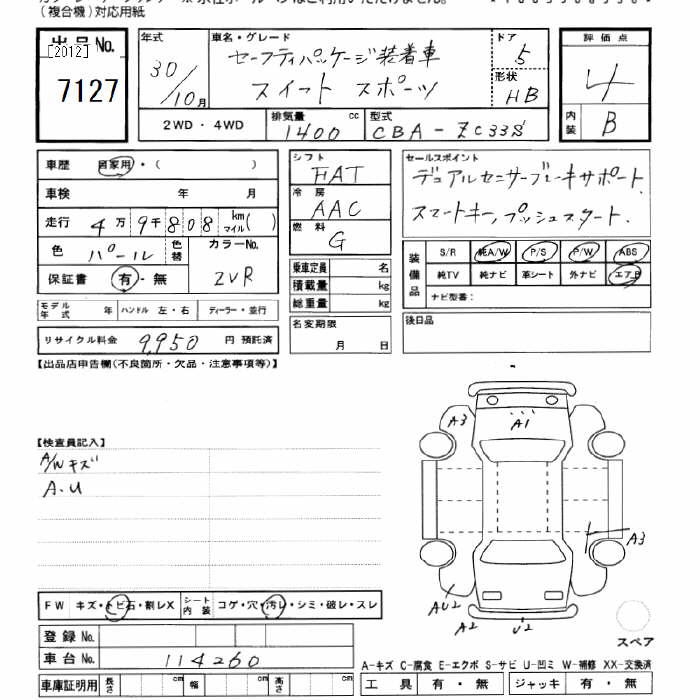 (複合機)対応用紙
出品No.
[2012]
7127
年式 車名・グレード ドア 評価点
30/10月 セーフティパッケージ装着車 5 4
スイフト スポーツ 形状 HB
2WD・4WD 排気量 1400 cc 型式 CBA-ZC33S 内装 B
車歴 自家用・( )
車検 年 月
走行 4万9千808 km マイル( )
色 パール 色替 カラーNo. ZVR
保証書 有・無
モデル年式 年 ハンドル 左・右 ディーラー・並行
リサイクル料金 9,950 円 預託済
シフト FAT
冷房 AAC
燃料 G
乗車定員 名
積載量 kg
総重量 kg
名変期限
月 日
セールスポイント
デュアルセンサーブレーキサポート
スマートキー,プッシュスタート.
装備品 S/R 純A/W P/S P/W ABS
純TV 純ナビ 革シート 外ナビ エアB
ナビ型番:
後日品
【出品店申告欄(不良箇所・欠品・注意事項等)】
【検査員記入】
A/Wキズ
A.U
A3 A1
A3
AU2
A2 U2
スペア
FW キズ・トビ石・割レX シート内装 コゲ・穴・汚レ・シミ・破レ・スレ
登録No.
車台No. 114260
車庫証明用 長さ cm 幅 cm 高さ cm
A-キズ C-腐食 E-エクボ S-サビ U-凹ミ W-補修 XX-交換済
工具 有・無 ジャッキ 有・無